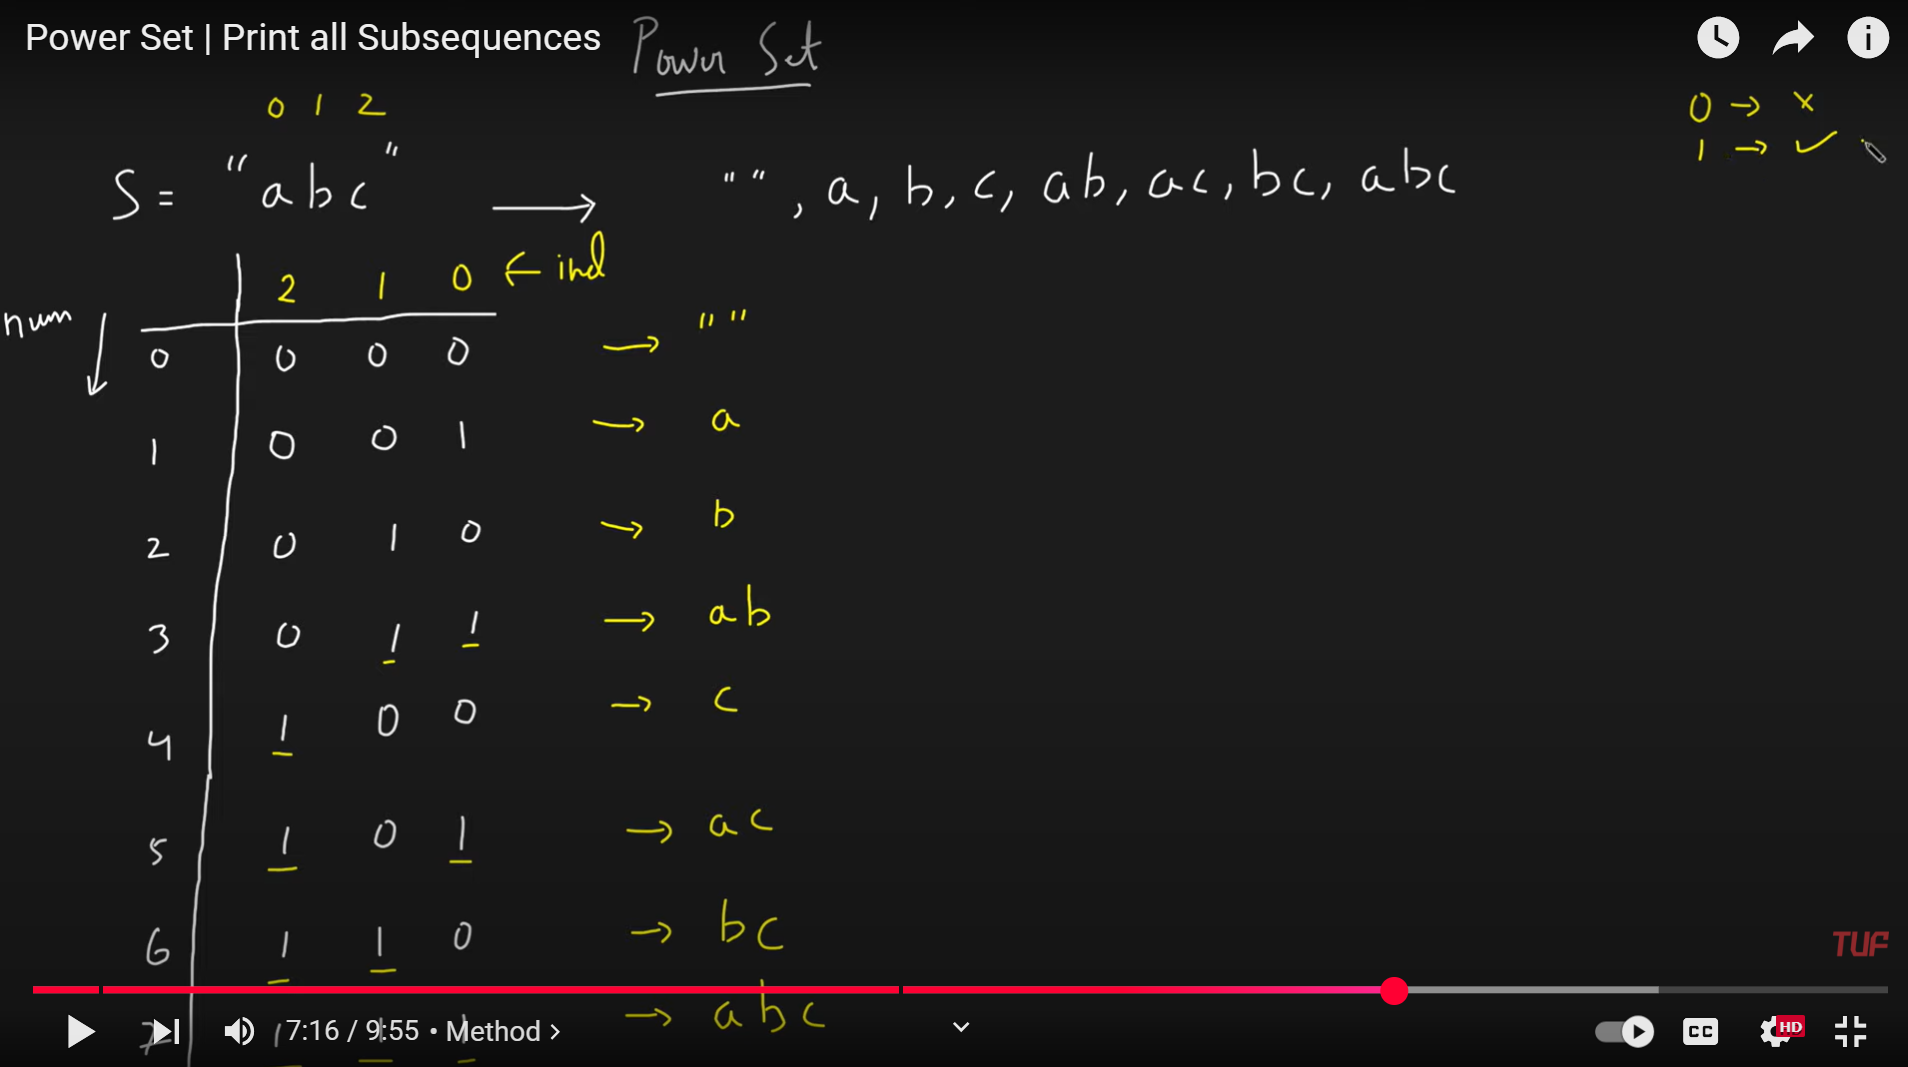 Power Set | Print all Subsequences
Power Set
0 1 2
0 → ×
1 → ✓
S = "abc" → "", a, b, c, ab, ac, bc, abc
2 1 0 ← ind
num ↓
0 0 0 0 → ""
1 0 0 1 → a
2 0 1 0 → b
3 0 1 1 → ab
4 1 0 0 → c
5 1 0 1 → ac
6 1 1 0 → bc
TUF
7 1 1 1 → abc
7:16 / 9:55 • Method >
CC
HD